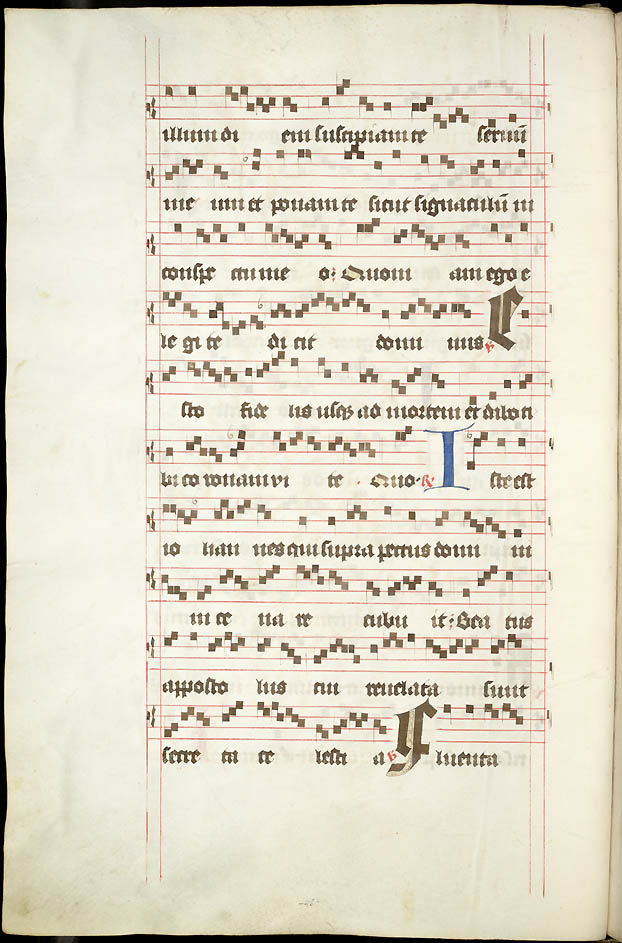 illum di em suscipiam te seruū
me um et ponam te sicut signaculū in
conspe ctu me o: Quoni am ego e
le gi te di cit domi nus ℣ E
sto fide lis usqꝫ ad mortem et dabo ti
bi co ronam vi te . Quo. ℟ I ste est
io han nes qui supra pectus domi ni
in ce na re cubu it: Bea tus
apposto lus cui reuelata sunt
secre ta ce lesti a ℣ F luenta